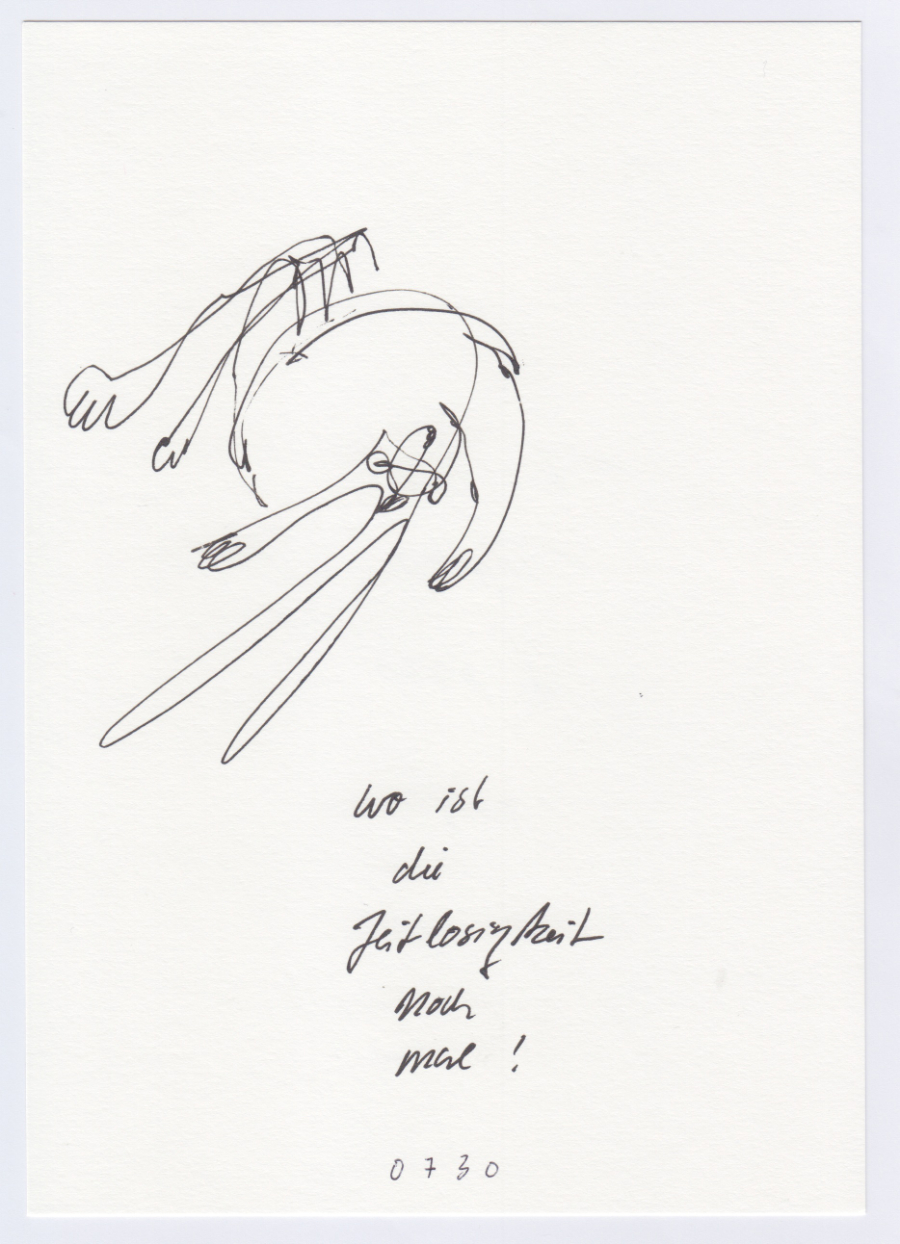 wo ist
die
Zeitlosigkeit
noch
mal !
0730